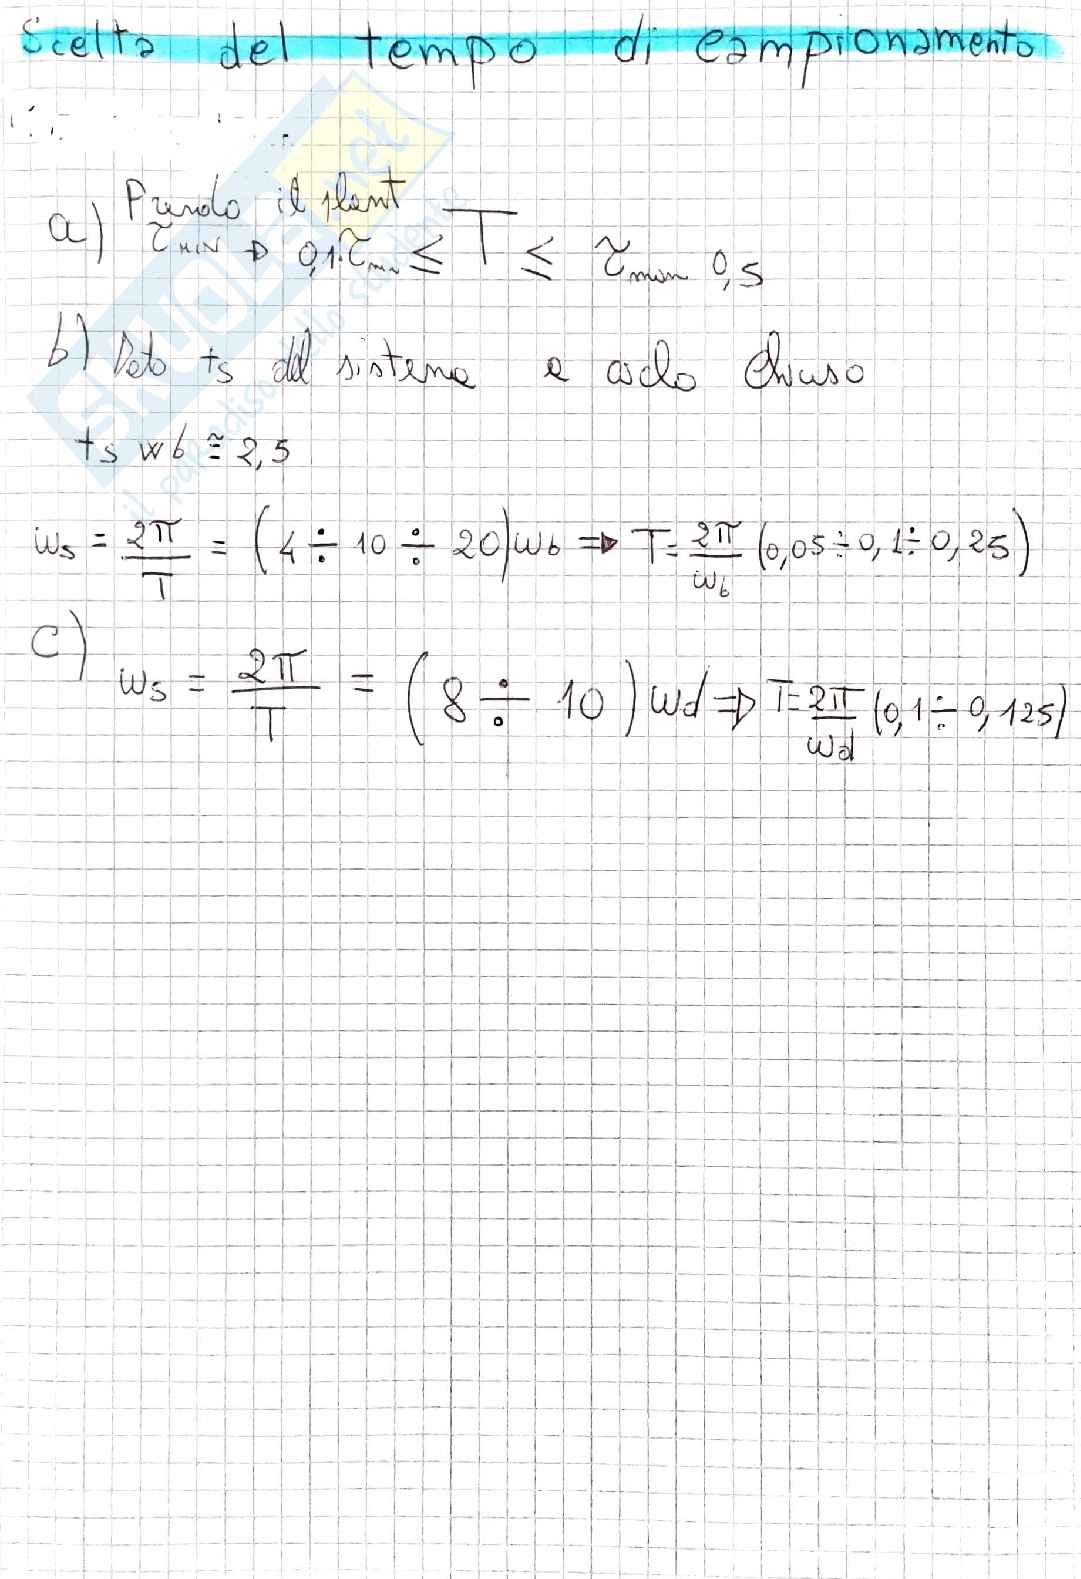 Scelta del tempo di campionamento
a) Prendo il plant
τMIN ⇒ 0,1·τmin ≤ T ≤ τmin 0,5
b) Dato ts del sistema a ciclo chiuso
ts wb ≅ 2,5
ws = 2π/T = (4 ÷ 10 ÷ 20) wb => T = 2π/wb (0,05 ÷ 0,1 ÷ 0,25)
c) ws = 2π/T = (8 ÷ 10) wd => T = 2π/wd (0,1 ÷ 0,125)
SKUOLA.net
il paradiso dello studente